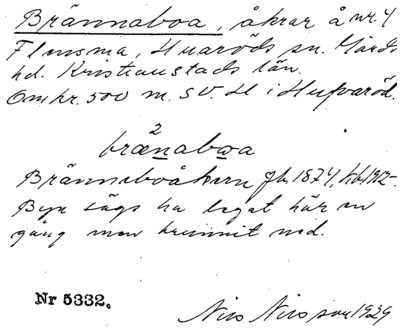 Brännaboa, åkrar å nr. 4
Flinsma, Huaröds sn. Gärds
hd. Kristianstads län.
Omkr. 500 m. SV. H i Hufvaröd.
2
brænabωa
Brännaboåkern jb. 1874, kb. 1912-.
Byn sägs ha legat här en
gång men brunnit ned.
Nr 5332.
Nils Nilsson 1929